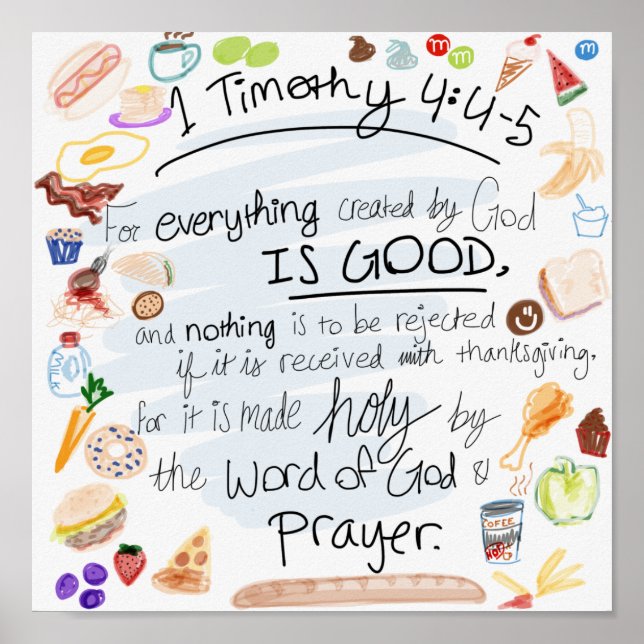 m
m
m
1 Timothy 4:4-5
For everything created by God
IS GOOD,
and nothing is to be rejected
if it is received with thanksgiving,
for it is made holy by
the Word of God &
Prayer.
MILK
COFEE
HOT